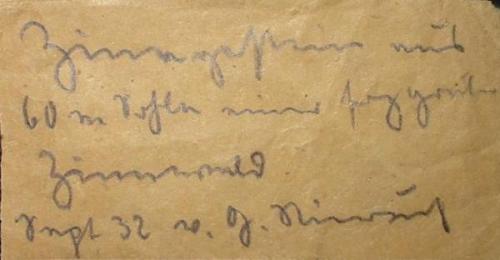 Zinngestein aus
60 m Sohle einer
Zinnwald
Sept 32 v. G.